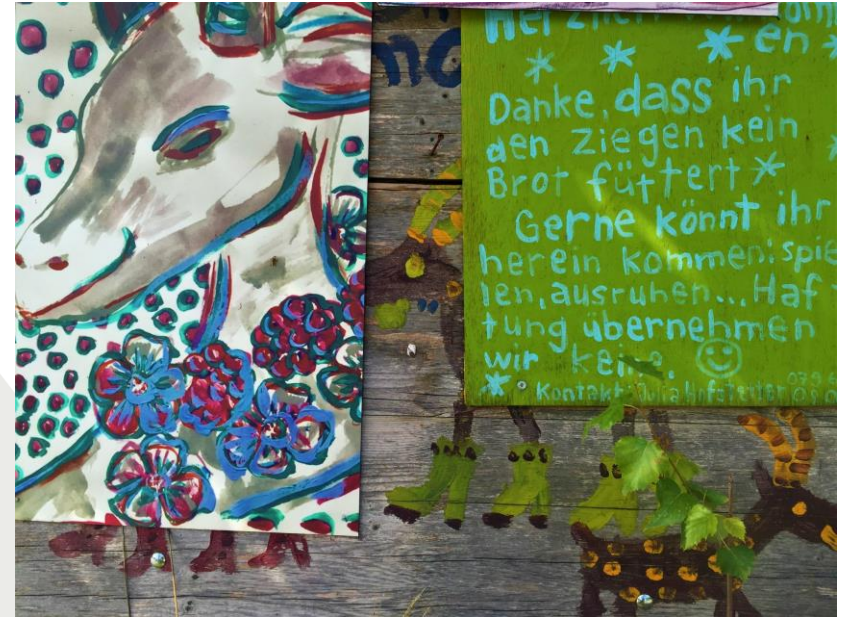 no
en *
* * *
Danke, dass ihr
den ziegen kein
Brot füttert *
Gerne könnt ihr
herein kommen: spie
len, ausruhen... Haf -
tung übernehmen
wir keine. ☺
* Kontakt: Julia Hofstetter